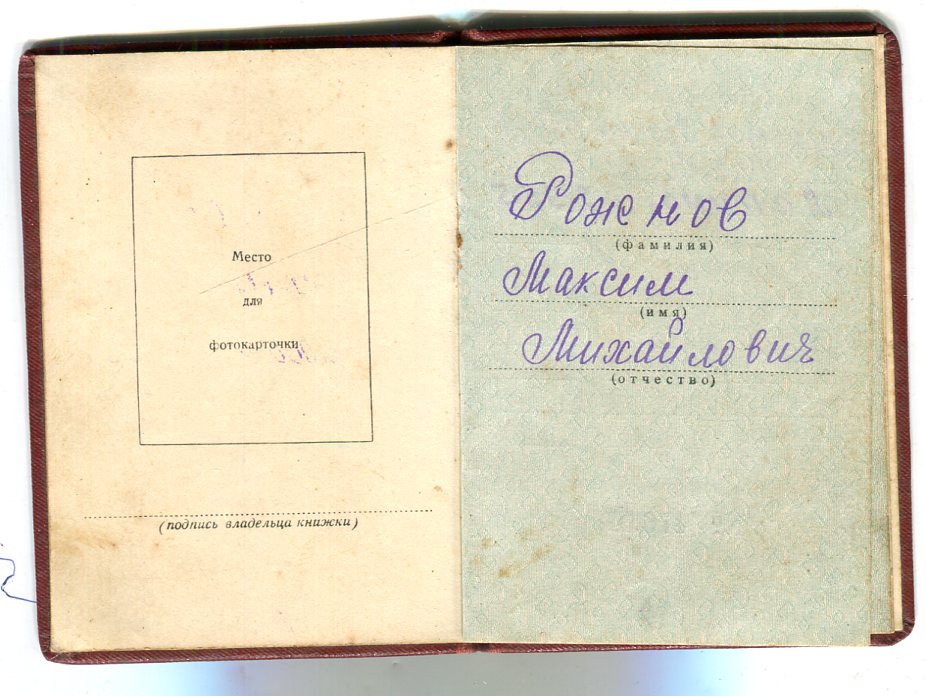 Место
для
фотокарточки
(подпись владельца книжки)
Рожнов
(фамилия)
Максим
(имя)
Михайлович
(отчество)